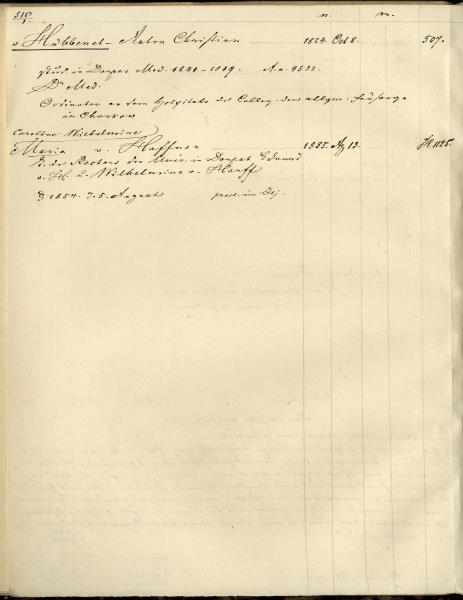 510/1. n. m.
v. Hübbenet - Anton Christian 1824. Oct 8. 507.
stud in Dorpat Med. 1841 - 1849. A.a. 4531.
Dr Med.
Ordinator an dem Hospitale des Colleg. der allgem. Fürsorge
in Charkow
Caroline Wilhelmine
Maria v. Haffner 1835. Ag 13. H. 1125.
d. des Rectors der Univ. in Dorpat Eduard
v. H. u. Wilhelmine v. Hauff
1854. 3.5. August procl. in Dj.